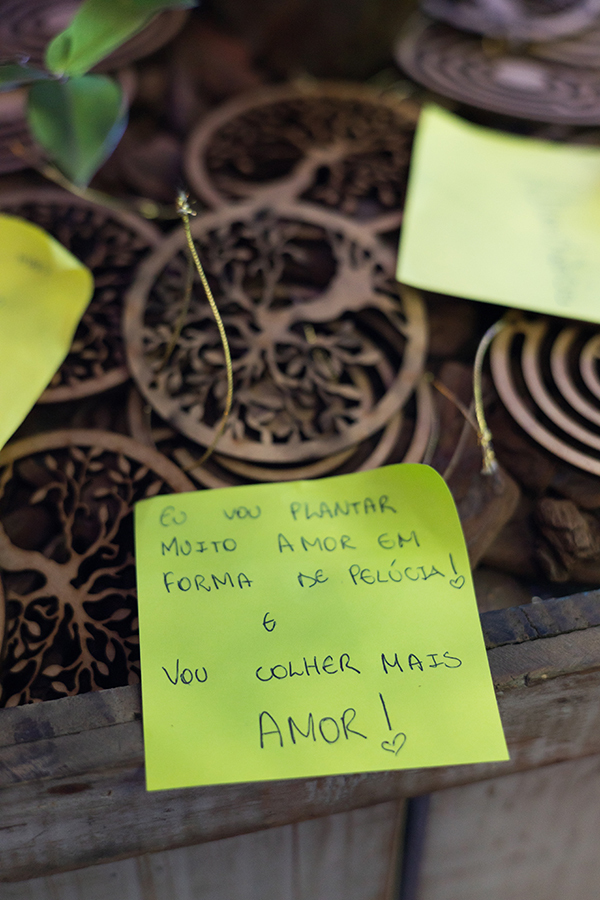 EU VOU PLANTAR
MUITO AMOR EM
FORMA DE PELÚCIA!
E
VOU COLHER MAIS
AMOR!